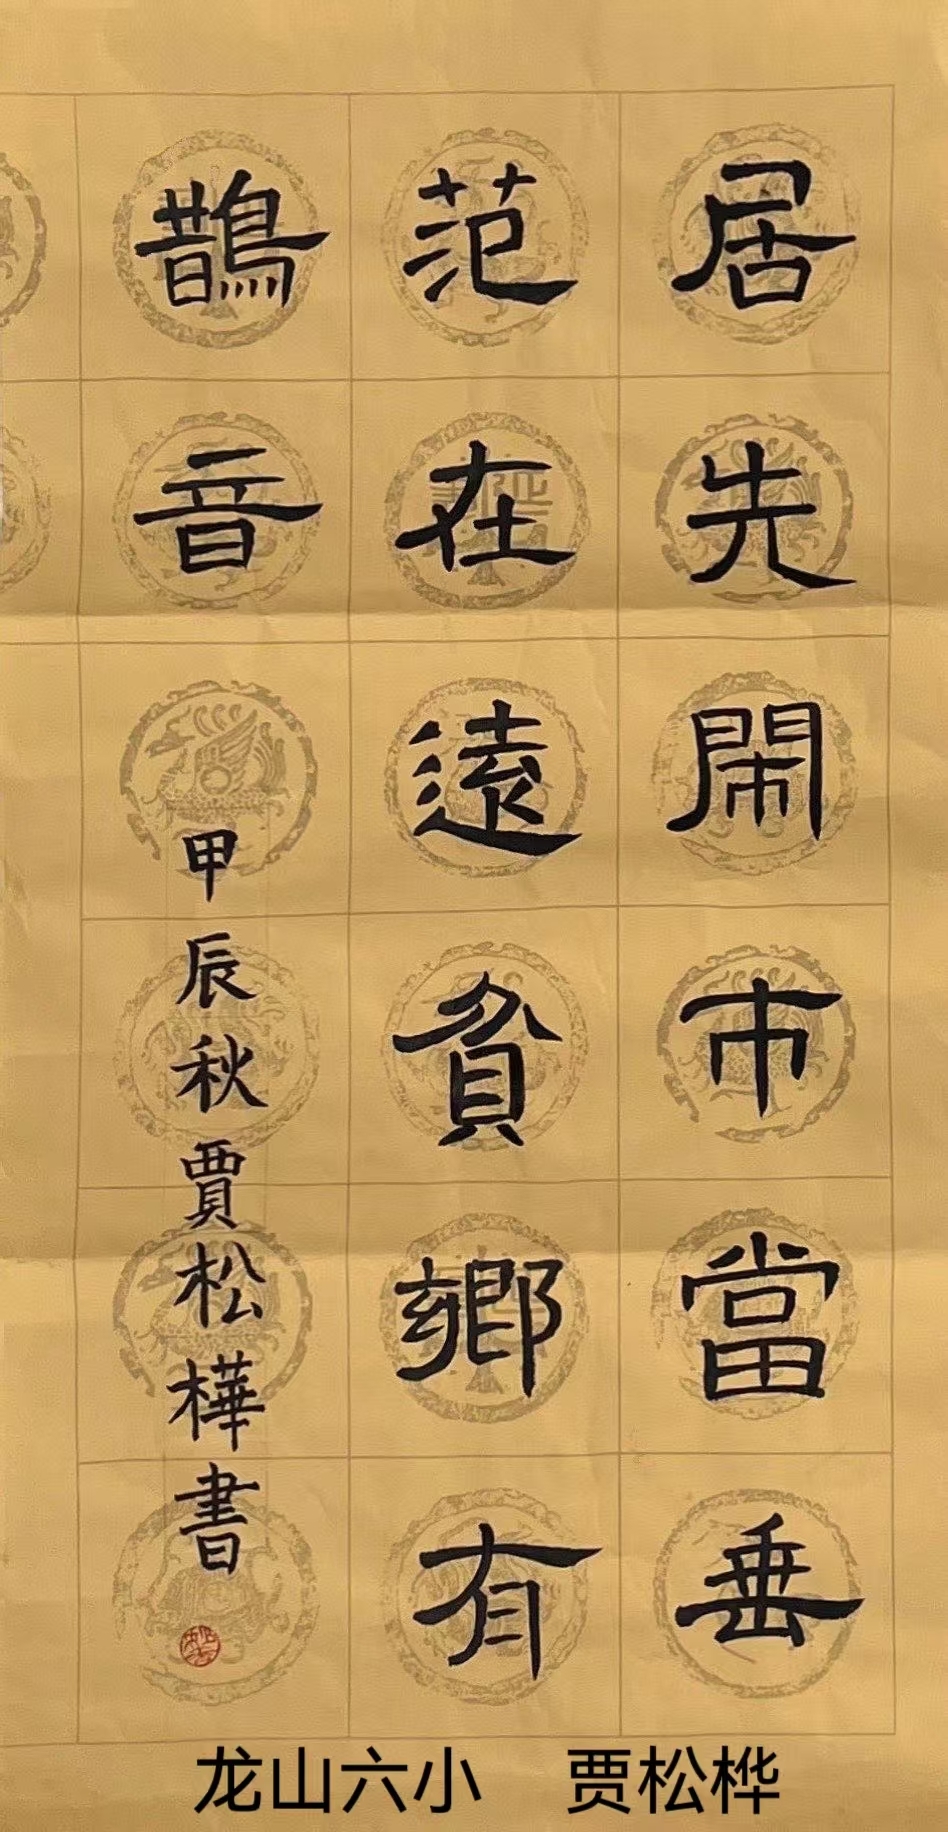 居先閙市當垂
范在遠貧鄉有
鵲音
甲辰秋賈松樺書
龙山六小 贾松桦